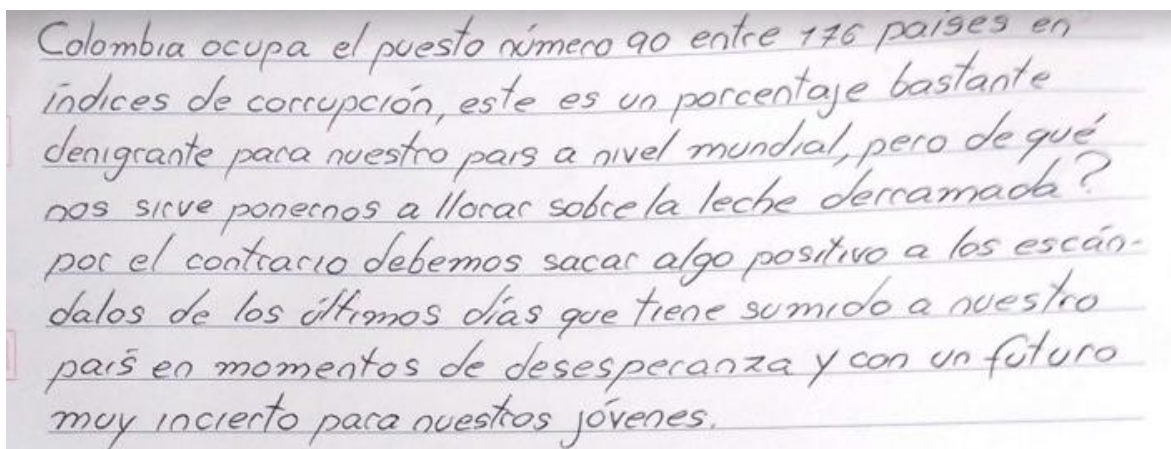 Colombia ocupa el puesto número 90 entre 176 países en
índices de corrupción, este es un porcentaje bastante
denigrante para nuestro país a nivel mundial, pero de qué
nos sirve ponernos a llorar sobre la leche derramada?
por el contrario debemos sacar algo positivo a los escán-
dalos de los últimos días que tiene sumido a nuestro
país en momentos de desesperanza y con un futuro
muy incierto para nuestros jóvenes.